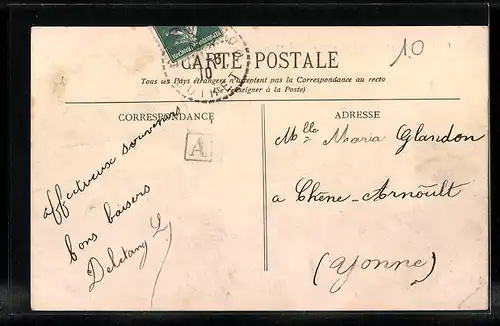 10
CARTE POSTALE
Tous les Pays étrangers n'acceptent pas la Correspondance au recto
(Se renseigner à la Poste)
CORRESPONDANCE
ADRESSE
A
affectueux souvenirs
bons baisers
Deletang L
Mlle Maria Glandon
a Chêne-Arnoult
(Yonne)